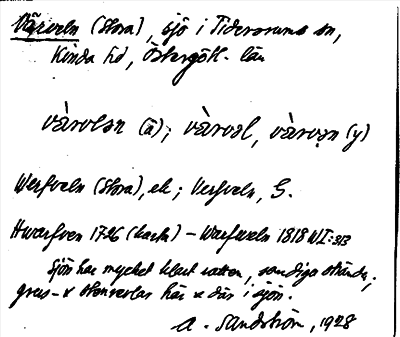 Värveln (Stora), sjö i Tidersrums sn,
Kinda hd, Östergötl. län
vàrvlən (ä); vàrvəl, vàrvən (y)
Werfveln (Stora), ek; Verfveln, G.
Hwarfven 1796 (karta) – Warfweln 1818 N I:313
Sjön har mycket klart vatten, sandiga stränder,
grus- o stenrevlar här o där i sjön.
A. Sandström, 1928